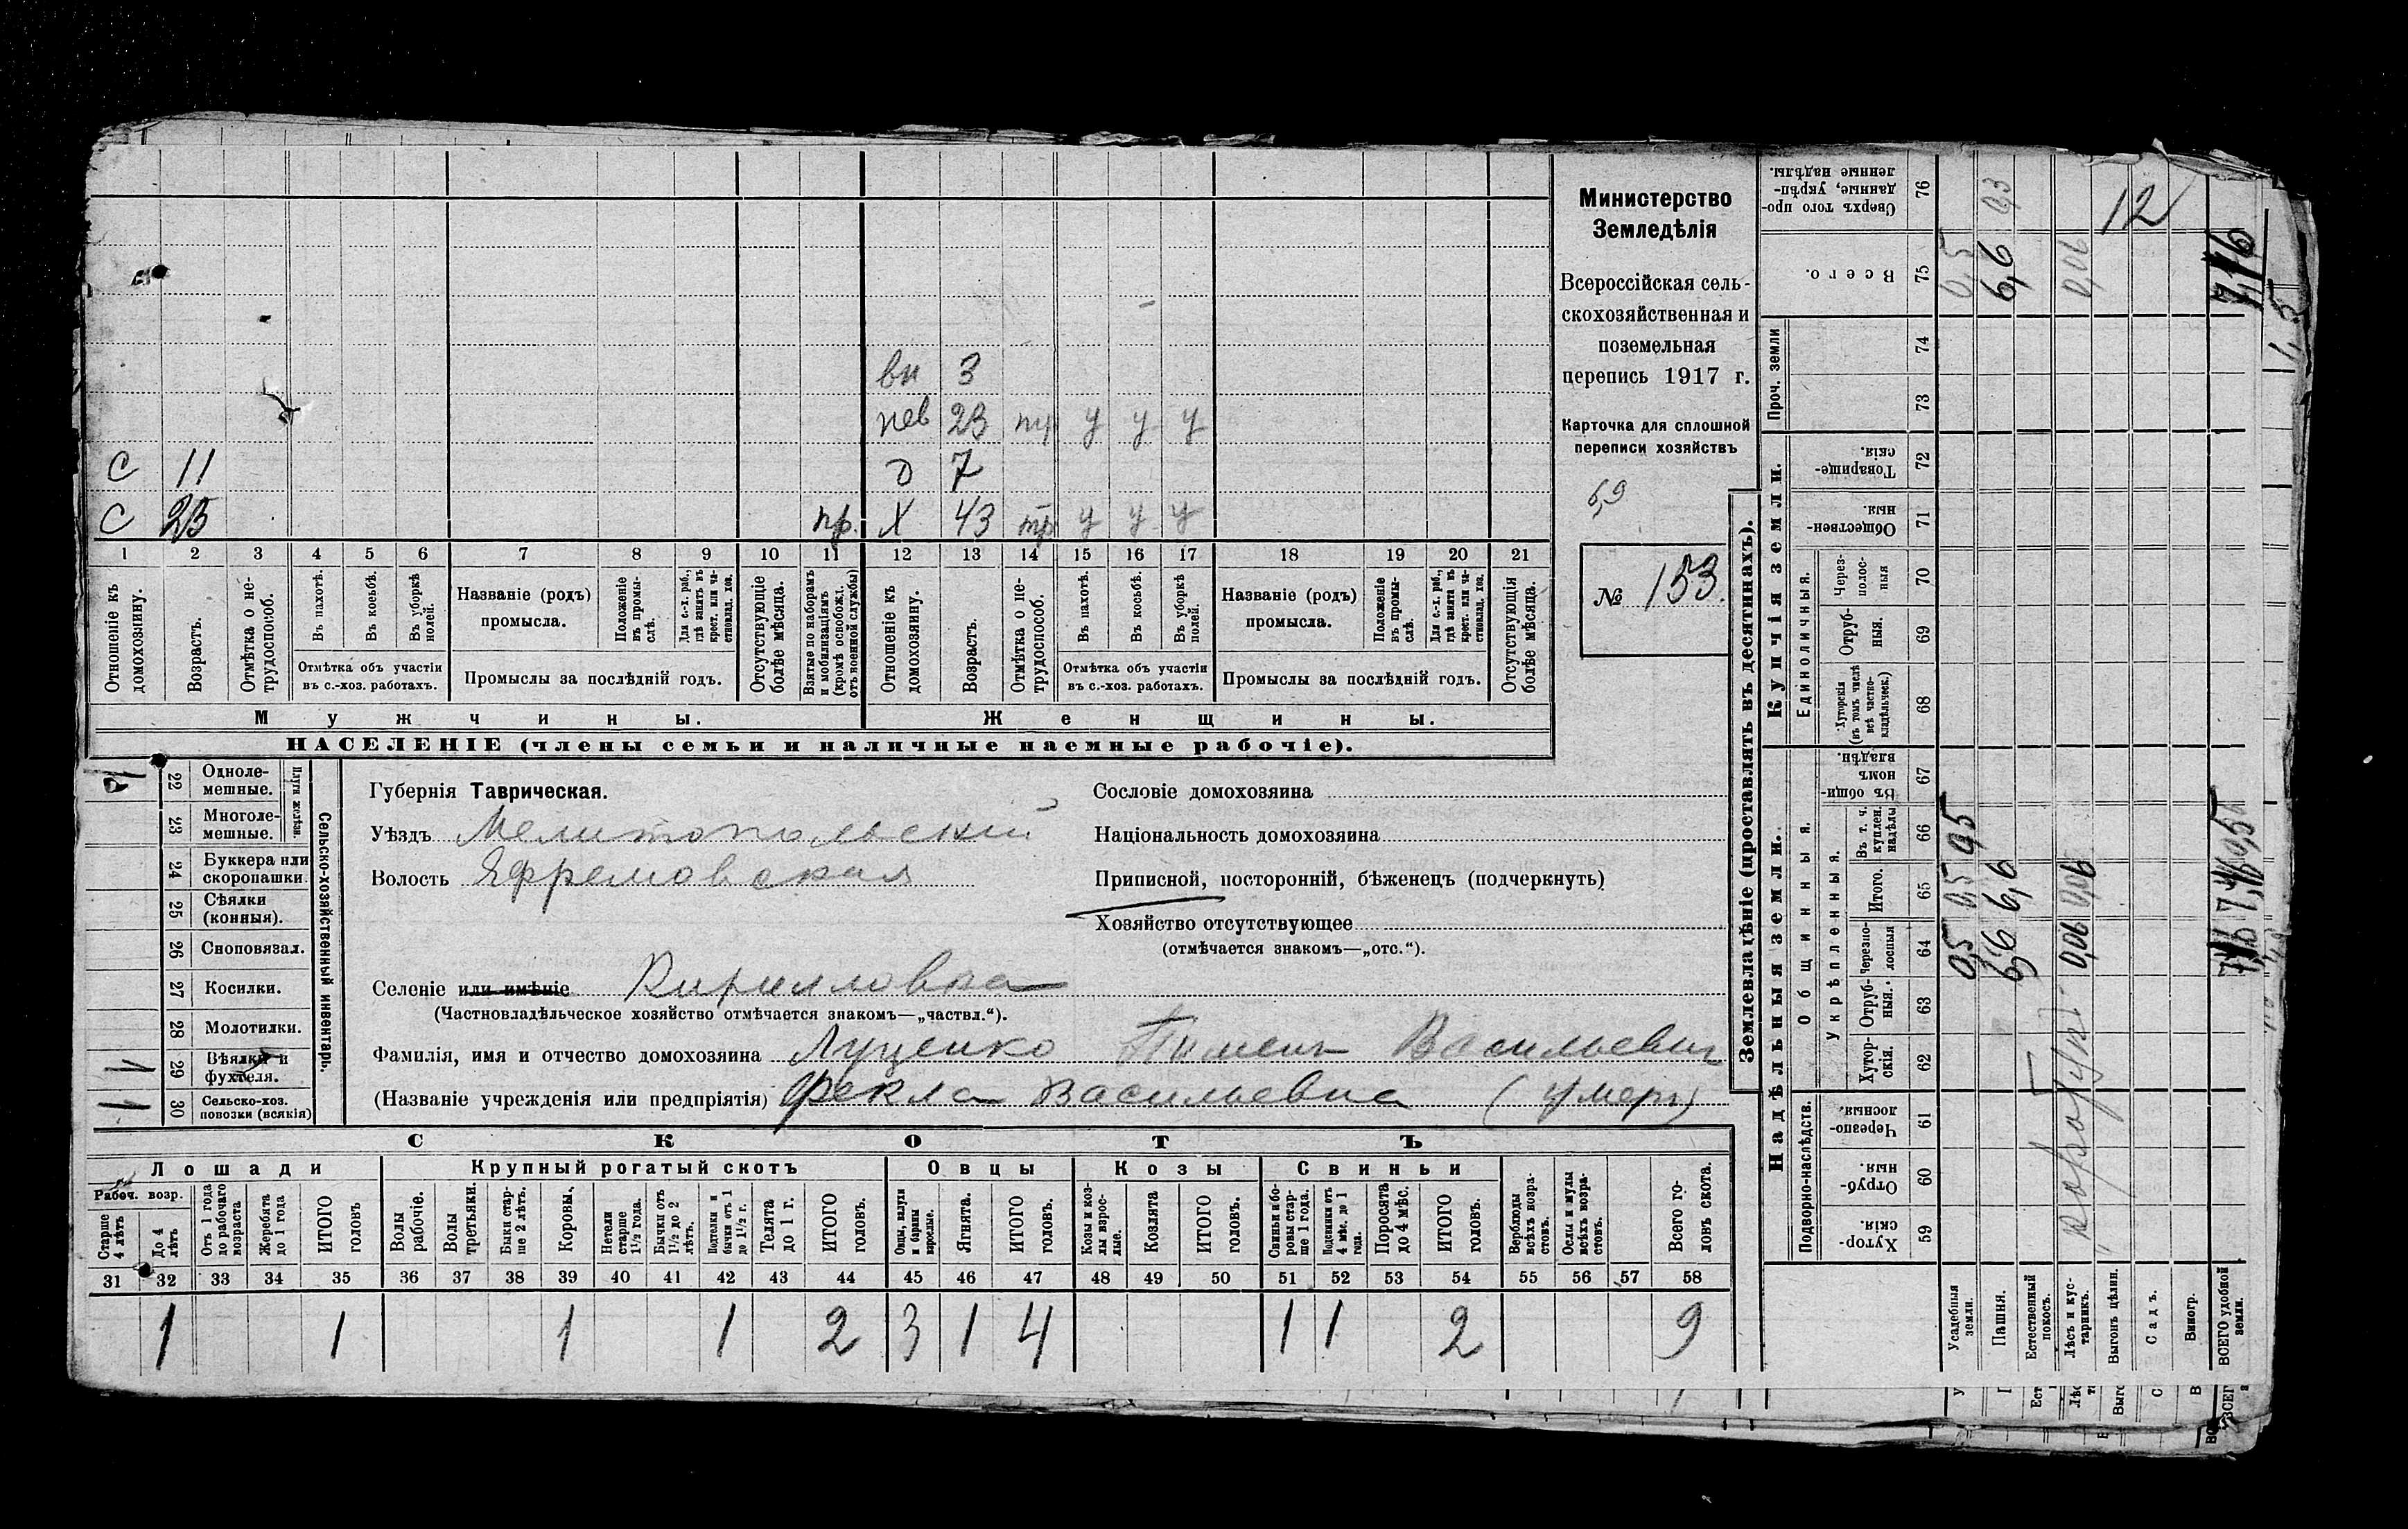 Министерство
Земледѣлія
Всероссійская сель-
скохозяйственная и
поземельная
перепись 1917 г.
Карточка для сплошной
переписи хозяйствъ
5,9
№ 153.
вн 3
нев 23 тр у у у
С 11 д 7
С 23 пр. Х 43 тр у у у
1 2 3 4 5 6 7 8 9 10 11 12 13 14 15 16 17 18 19 20 21
Отношеніе къ домохозяину.
Возрастъ.
Отмѣтка о не-трудоспособ.
Въ пахотѣ.
Въ косьбѣ.
Въ уборкѣ полей.
Отмѣтка объ участіи
въ с.-хоз. работахъ.
Названіе (родъ)
промысла.
Положеніе въ промы-слѣ.
Для с.-х. раб., гдѣ занятъ въ крест. или ча-стновлад. хоз.
Промыслы за послѣдній годъ.
Отсутствующіе болѣе мѣсяца.
Взятые по наборамъ и мобилизаціямъ (кромѣ освобожд. отъ военной службы)
Отношеніе къ домохозяину.
Возрастъ.
Отмѣтка о не-трудоспособ.
Въ пахотѣ.
Въ косьбѣ.
Въ уборкѣ полей.
Отмѣтка объ участіи
въ с.-хоз. работахъ.
Названіе (родъ)
промысла.
Положеніе въ промы-слѣ.
Для с.-х. раб., гдѣ занята въ крест. или ча-стновлад. хоз.
Промыслы за послѣдній годъ.
Отсутствующія болѣе мѣсяца.
Мужчины. Женщины.
НАСЕЛЕНІЕ (члены семьи и наличные наемные рабочіе).
Сельско-хозяйственный инвентарь.
Плуги желѣзн.
22 Одноле-мешные.
23 Многоле-мешные.
24 Буккера или скоропашки.
25 Сѣялки (конныя).
26 Сноповязал.
27 Косилки.
28 Молотилки.
1 29 Вѣялки и фухтеля.
1 30 Сельско-хоз. повозки (всякія)
Губернія Таврическая.
Уѣздъ Мелитопольский
Волость Ефремовская
Селеніе или имѣніе Кирилловка
(Частновладѣльческое хозяйство отмѣчается знакомъ—„частвл.“).
Фамилія, имя и отчество домохозяина Луценко Пимен Васильевич
(Названіе учрежденія или предпріятія) Фекла Васильевна (умер)
Сословіе домохозяина
Національность домохозяина
Приписной, посторонній, бѣженецъ (подчеркнуть)
Хозяйство отсутствующее
(отмѣчается знакомъ—„отс.“).
СКОТЪ
Лошади Крупный рогатый скотъ Овцы Козы Свиньи
Рабоч. возр.
Старше 4 лѣтъ
До 4 лѣтъ
Отъ 1 года до рабочаго возраста
Жеребята до 1 года
ИТОГО головъ
Волы рабочіе.
Волы третьяки.
Быки стар-ше 2 лѣтъ.
Коровы.
Нетели старше 1½ года.
Бычки отъ 1½ до 2 лѣтъ.
Подтелки и бычки отъ 1 до 1½ г.
Телята до 1 г.
ИТОГО головъ.
Овцы, валухи и бараны взрослые.
Ягнята.
ИТОГО головъ.
Козы и коз-лы взрос-лые.
Козлята
ИТОГО головъ.
Свиньи и бо-ровы стар-ше 1 года.
Подсвинки отъ 4 мѣс. до 1 года.
Поросята до 4 мѣс.
ИТОГО головъ.
Верблюды всѣхъ возра-стовъ.
Ослы и мулы всѣхъ возра-стовъ.
Всего го-ловъ скота.
31 32 33 34 35 36 37 38 39 40 41 42 43 44 45 46 47 48 49 50 51 52 53 54 55 56 57 58
1 1 1 1 2 3 1 4 1 1 2 9
Землевладѣніе (проставлять въ десятинахъ).
Надѣльныя земли.
Купчія земли.
Проч. земли
Подворно-наслѣдств.
Общинныя.
Укрѣпленныя.
Единоличныя.
59 Хутор-скія.
60 Отруб-ныя.
61 Черезпо-лосныя.
62 Хутор-скія.
63 Отруб-ныя.
64 Черезпо-лосныя
65 Итого.
66 Въ т. ч. куплен. надѣлы
67 Въ общи-номъ владѣн.
68 Хуторскія (въ томъ числѣ всѣ частно-владѣльческ.)
69 Отруб-ныя.
70 Через-полос-ныя
71 Обществен-ныя.
72 Товарище-скія.
73
74
75 Всего.
76 Сверхъ того про-данные, укрѣп-ленные надѣлы.
Усадебныя земли. 0,5 0,5 0,5 0,5
Пашня. 6,6 6,6 6,6
Естественный покосъ.
Лѣсъ и кус-тарникъ. 0,06 0,06 0,06
Выгонъ цѣлин. 12
Садъ.
Виногр.
ВСЕГО удобной земли. 7,16 7,16 0,5 7,16
1,5